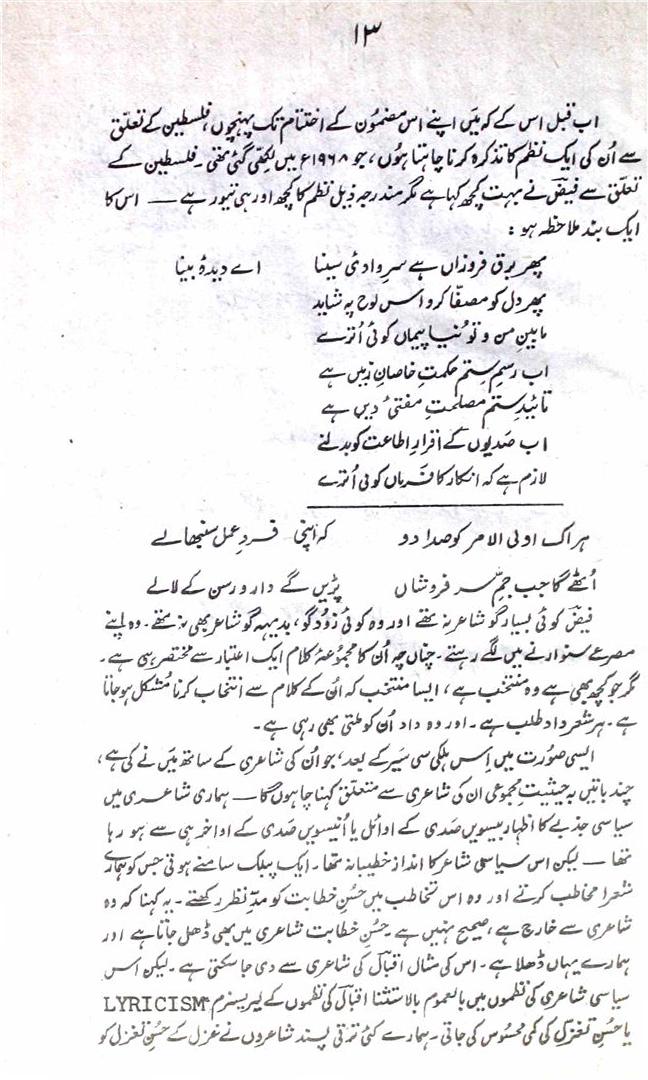 ۱۳
اب قبل اس کے کہ میں اپنے اس مضمون کے اختتام تک پہنچوں، فلسطین کے تعلّق
سے اُن کی ایک نظم کا تذکرہ کرنا چاہتا ہوں، جو ۱۹۶۸ء میں لکھی گئی تھی۔ فلسطین کے
تعلّق سے فیضؔ نے بہت کچھ کہا ہے مگر مندرجہ ذیل نظم کا کچھ اور ہی تیور ہے — اس کا
ایک بند ملاحظہ ہو:
پھر برق فروزاں ہے سرِ وادیٔ سینا اے دیدۂ بینا
پھر دل کو مصفّا کرو اس لوح پہ شاید
مابینِ من و تو نیا پیماں کوئی اُترے
اب رسمِ ستم حکمتِ خاصانِ زمیں ہے
تائیدِ ستم مصلحتِ مفتیٔ دیں ہے
اب صدیوں کے اقرارِ اطاعت کو بدلنے
لازم ہے کہ انکار کا فرماں کوئی اُترے
ہر اک اولی الامر کو صدا دو کہ اپنی فردِ عمل سنبھالے
اُٹھے گا جب جمِّ سرفروشاں پڑیں گے دار و رسن کے لالے
فیضؔ کوئی بسیار گو شاعر نہ تھے اور وہ کوئی زود گو، بدیہہ گو شاعر بھی نہ تھے۔ وہ اپنے
مصرعے سنوارنے میں لگے رہتے۔ چناں چہ اُن کا مجموعۂ کلام ایک اعتبار سے مختصر ہی ہے۔
مگر جو کچھ بھی ہے وہ منتخب ہے، ایسا منتخب کہ اُن کے کلام سے انتخاب کرنا مُشکل ہو جاتا
ہے۔ ہر شعر داد طلب ہے۔ اور وہ داد اُن کو ملتی بھی رہی ہے۔
ایسی صُورت میں اِس ہلکی سی سَیر کے بعد، جو اُن کی شاعری کے ساتھ میں نے کی ہے،
چند باتیں بہ حیثیتِ مجموعی ان کی شاعری سے متعلّق کہنا چاہوں گا — ہماری شاعری میں
سیاسی جذبے کا اظہار بیسویں صدی کے اوائل یا اُنیسویں صدی کے اواخر ہی سے ہو رہا
تھا — لیکن اس سیاسی شاعر کا انداز خطیبانہ تھا۔ ایک پبلک سامنے ہوتی جس کو ہمارے
شعرا مخاطب کرتے اور وہ اس تخاطب میں حُسنِ خطابت کو مدِّ نظر رکھتے۔ یہ کہنا کہ وہ
شاعری سے خارج ہے، صحیح نہیں ہے۔ حُسنِ خطابت شاعری میں بھی ڈھل جاتا ہے اور
ہمارے یہاں ڈھلا ہے۔ اس کی مثال اقبالؔ کی شاعری سے دی جا سکتی ہے۔ لیکن اس
سیاسی شاعری کی نظموں میں بالعموم بالاستثنا اقبالؔ کی نظموں کے لیریسزم LYRICISM
یا حُسنِ تغزّل کی کمی محسوس کی جاتی۔ ہمارے کئی ترقی پسند شاعروں نے غزل کے حسنِ تغزل کو